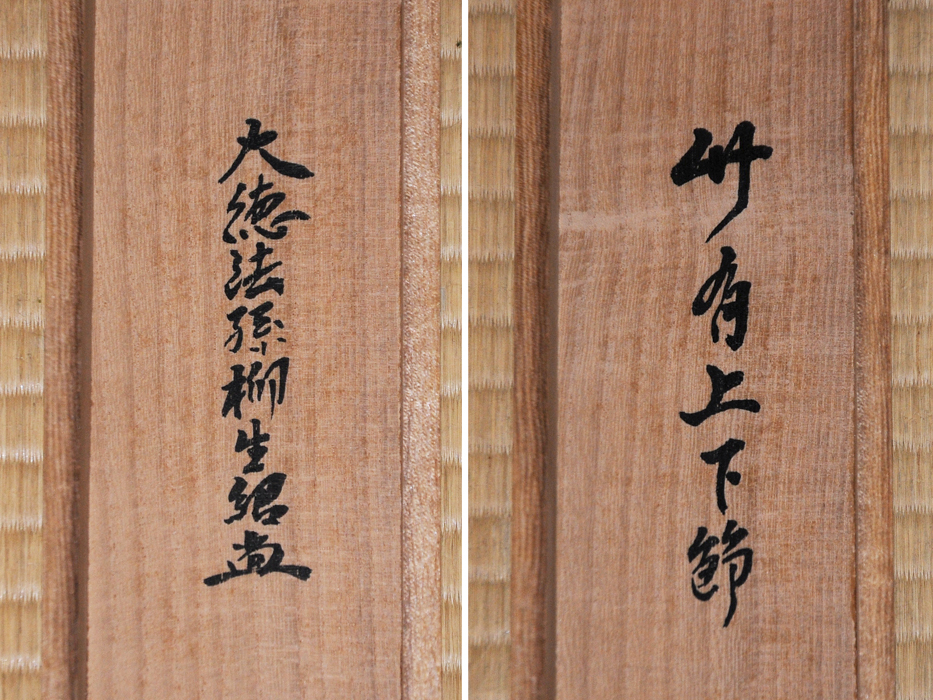 竹有上下節
大徳法孫柳生紹尚